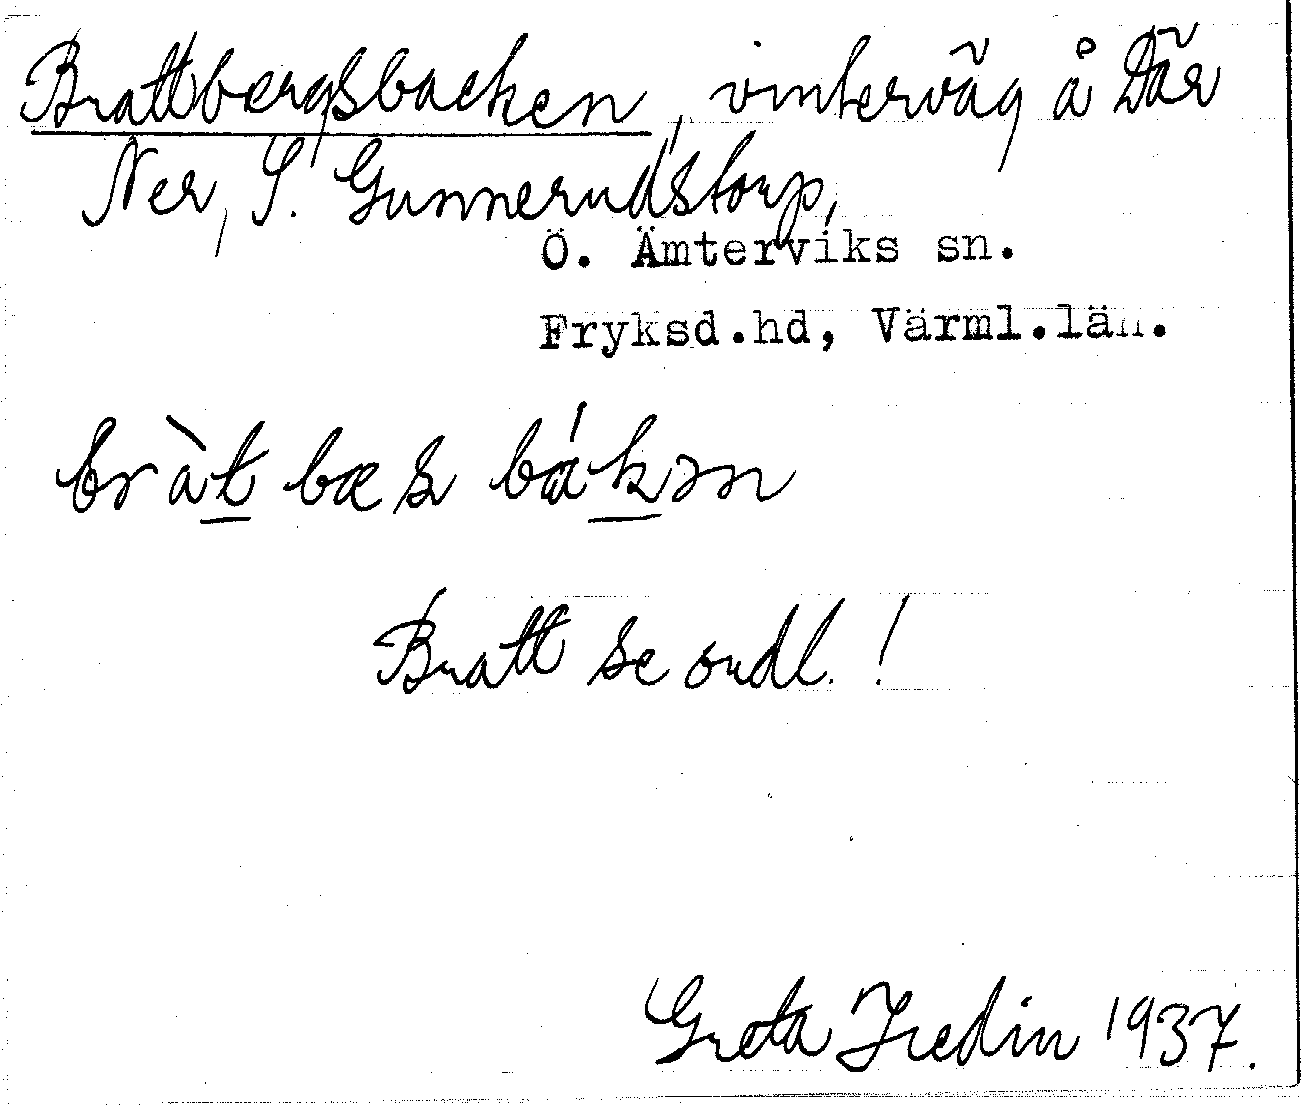 Brattbergsbacken, vinterväg å Där
Ner, S. Gunnerudstorp,
Ö. Ämterviks sn.
Fryksd.hd, Värml.län.
bràt bæs bákən
Bratt se ordl.!
Greta Fredin 1937.